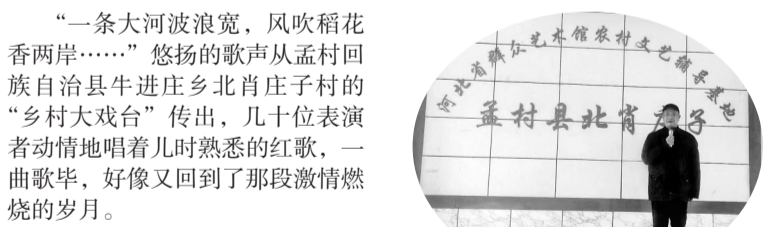 “一条大河波浪宽，风吹稻花
香两岸……”悠扬的歌声从孟村回
族自治县牛进庄乡北肖庄子村的
“乡村大戏台”传出，几十位表演
者动情地唱着儿时熟悉的红歌，一
曲歌毕，好像又回到了那段激情燃
烧的岁月。
河北省群众艺术馆农村文艺辅导基地
孟村县北肖 子